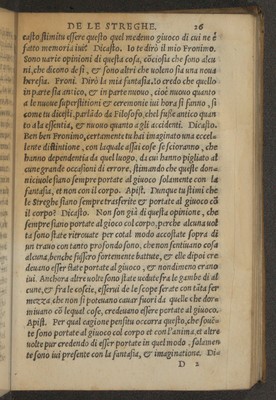 DE LE STREGHE. 26
easto stimi tu essere questo quel medemo giuoco di cui ne é
fatto memoria iui? Dicasto. Io te dirò il mio Fronimo.
Sono uarie opinioni di questa cosa, cōciosia che sono alcu
ni, che dicono de sì, & sono altri che uoleno sia una noua
heresia. Froni. Dirò la mia fantasia, io credo che quello
in parte sia antico, & in parte nuouo, cioè nuouo quanto
a le nuoue superstitioni & ceremonie iui hora si fanno, si
come tu dicesti, parlādo da Filosofo, chel fusse antico quan
to a la essentia, & nuouo quanto agli accidenti. Dicasto.
Ben ben Fronimo, certamente tu hai imaginato una eccel=
lente distintione, con laqual assai cose se scioranno, che
hanno dependentia da quel luogo, da cui hanno pigliato al
cune grande occasioni di errore, stimando che queste don=
niciuole siano sempre portate al giuoco solamente con la
fantasia, et non con il corpo. Apist. Dunque tu stimi che
le Streghe siano sempre trasferite & portate al giuoco cō
il corpo? Dicasto. Non son già di questa opinione, che
sempre siano portate al giuoco col corpo, perche alcuna uol
ta sono state ritrouate per cotal modo accostate sopra di
un trauo con tanto profondo sono, che non sentiuano cosa
alcuna, benche fussero fortemente battute, & elle dipoi cre
deuano esser state portate al giuoco, & nondimeno erano
iui. Anchora altre uolte sono state uedute fra le gambe di al
cune, & fra le coscie, esserui de le scope serate con tāta fer
mezza, che non si poteuano cauar fuori da quelle che dor=
miuano cō lequal cose, credeuano essere portate al giuoco.
Apist. Per qual cagione pensi tu occorra questo, che souē=
te sono portate al giuoco col corpo et con l'anima, et altre
uolte pur credendo di esser portate in quel modo, solamen=
te sono iui presente con la fantasia, & imaginatione. Di=
D 2